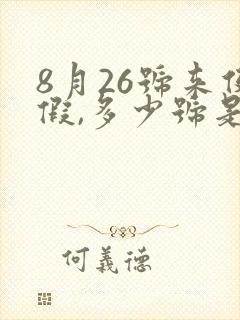 8月26號来例
假,多少號是
何義德